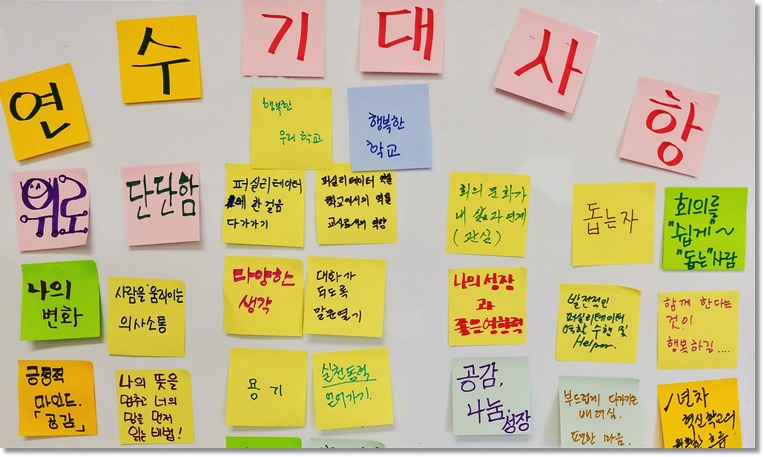 연수기대사항
행복한
우리 학교
행복한
학교
위로
단단함
퍼실리테이터
에 한 걸음
다가가기
퍼실리테이터 역할
학교에서의 역할
교사로서의 역량
회의 문화가
내 삶과 연계
(관심)
돕는자
회의를
"쉽게"~
"돕는"사람
나의
변화
사람을 움직이는
의사소통
다양한
생각
대화가
되도록
말문열기
나의 성장
과
좋은영향력
발전적인
퍼실리테이터
역할 수행 및
Helper.
함께 한다는
것이
행복하길....
긍정적
마인드.
「공감」
나의 뜻을
멈추고 너의
맘을 먼저
읽는 비법!
용기
실천동력
얻어가기.
공감,
나눔
성장
부드럽게 다가가는
배려심.
편한 마음.
✓년차
혁신학교의
흐름